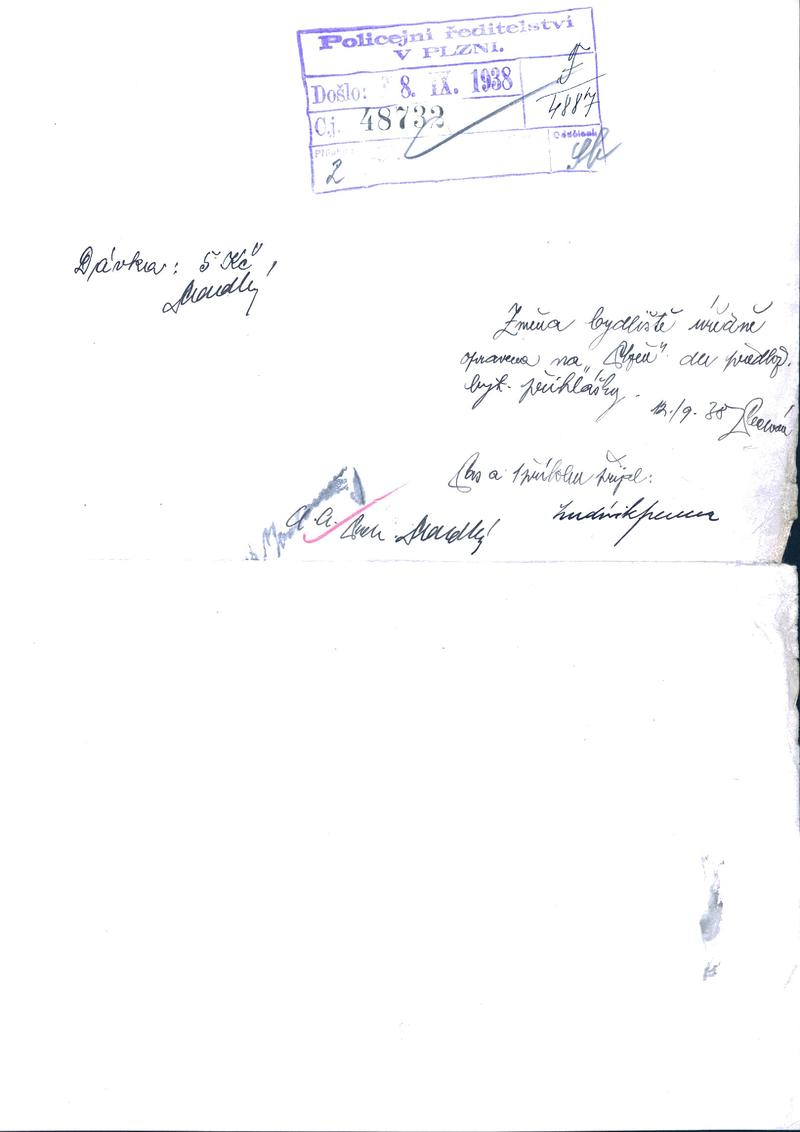 Policejní ředitelství
V PLZNI.
Došlo: 8. IX. 1938
Č.j. 48732
4887
Přílohy
Oddělení
2
Dávka: 5 Kč
Změna bydliště úředně
opravena na "Plzeň" dle předlož.
byt. přihlášky.
12./9. 38
Pas a 1 přílohu přijal:
a. a.